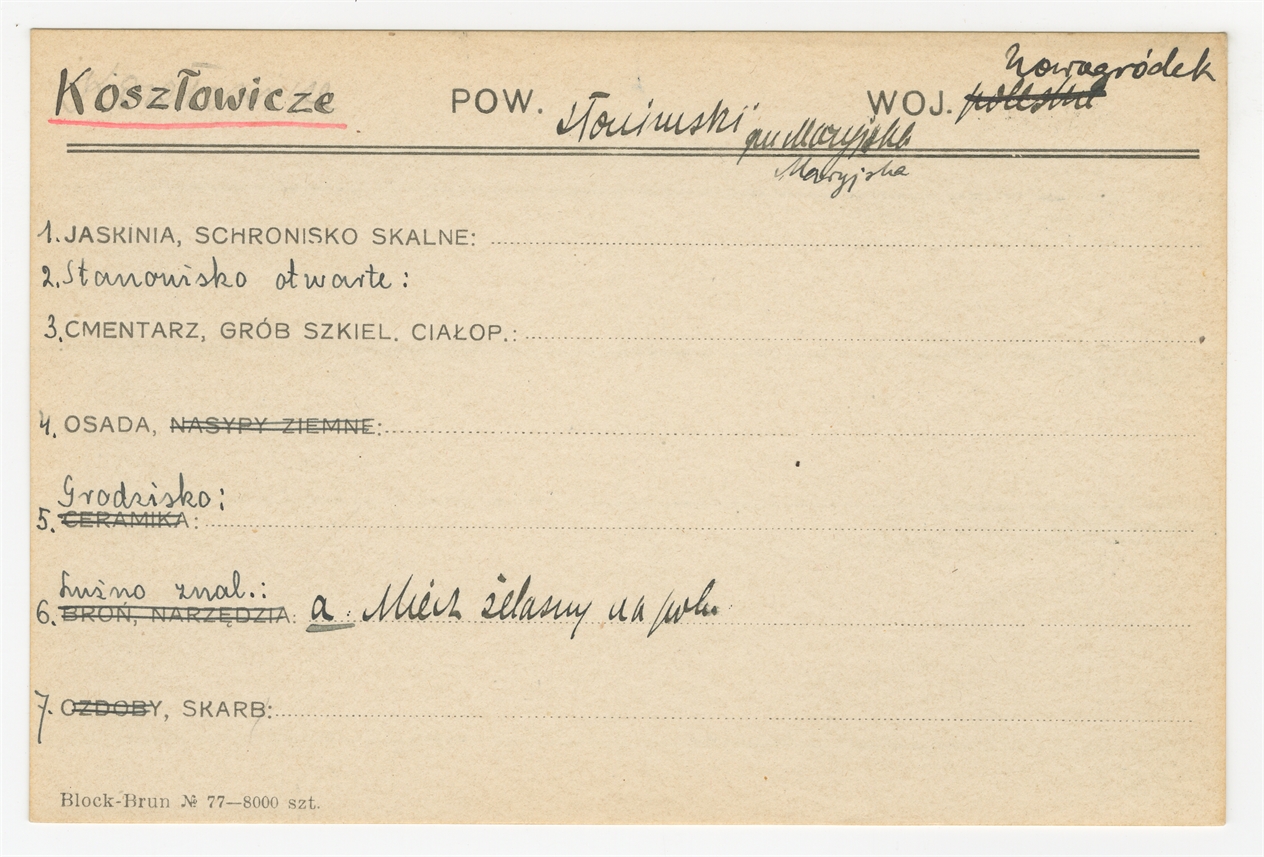 Koszłowicze POW. słonimski WOJ. poleskie Nowogródek
gm Maryjska
Maryjska
1. JASKINIA, SCHRONISKO SKALNE:
2. Stanowisko otwarte:
3. CMENTARZ, GRÓB SZKIEL. CIAŁOP.:
4. OSADA, NASYPY ZIEMNE:
Grodzisko:
5. CERAMIKA:
Luźno znal.:
6. BROŃ, NARZĘDZIA: a. Miecz żelazny na polu
7. OZDOBY, SKARB:
Block-Brun № 77—8000 szt.